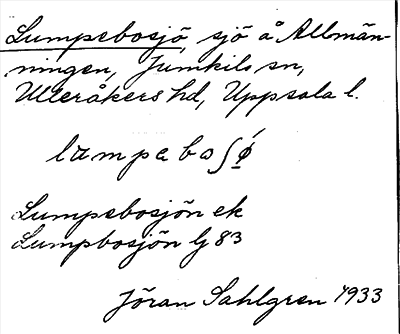 Lumpebosjö, sjö å Allmän-
ningen, Jumkils sn,
Ulleråkers hd, Uppsala l.
lumpeboʃǿ
Lumpebosjön ek
Lumpbosjön lj 83
Jöran Sahlgren 1933